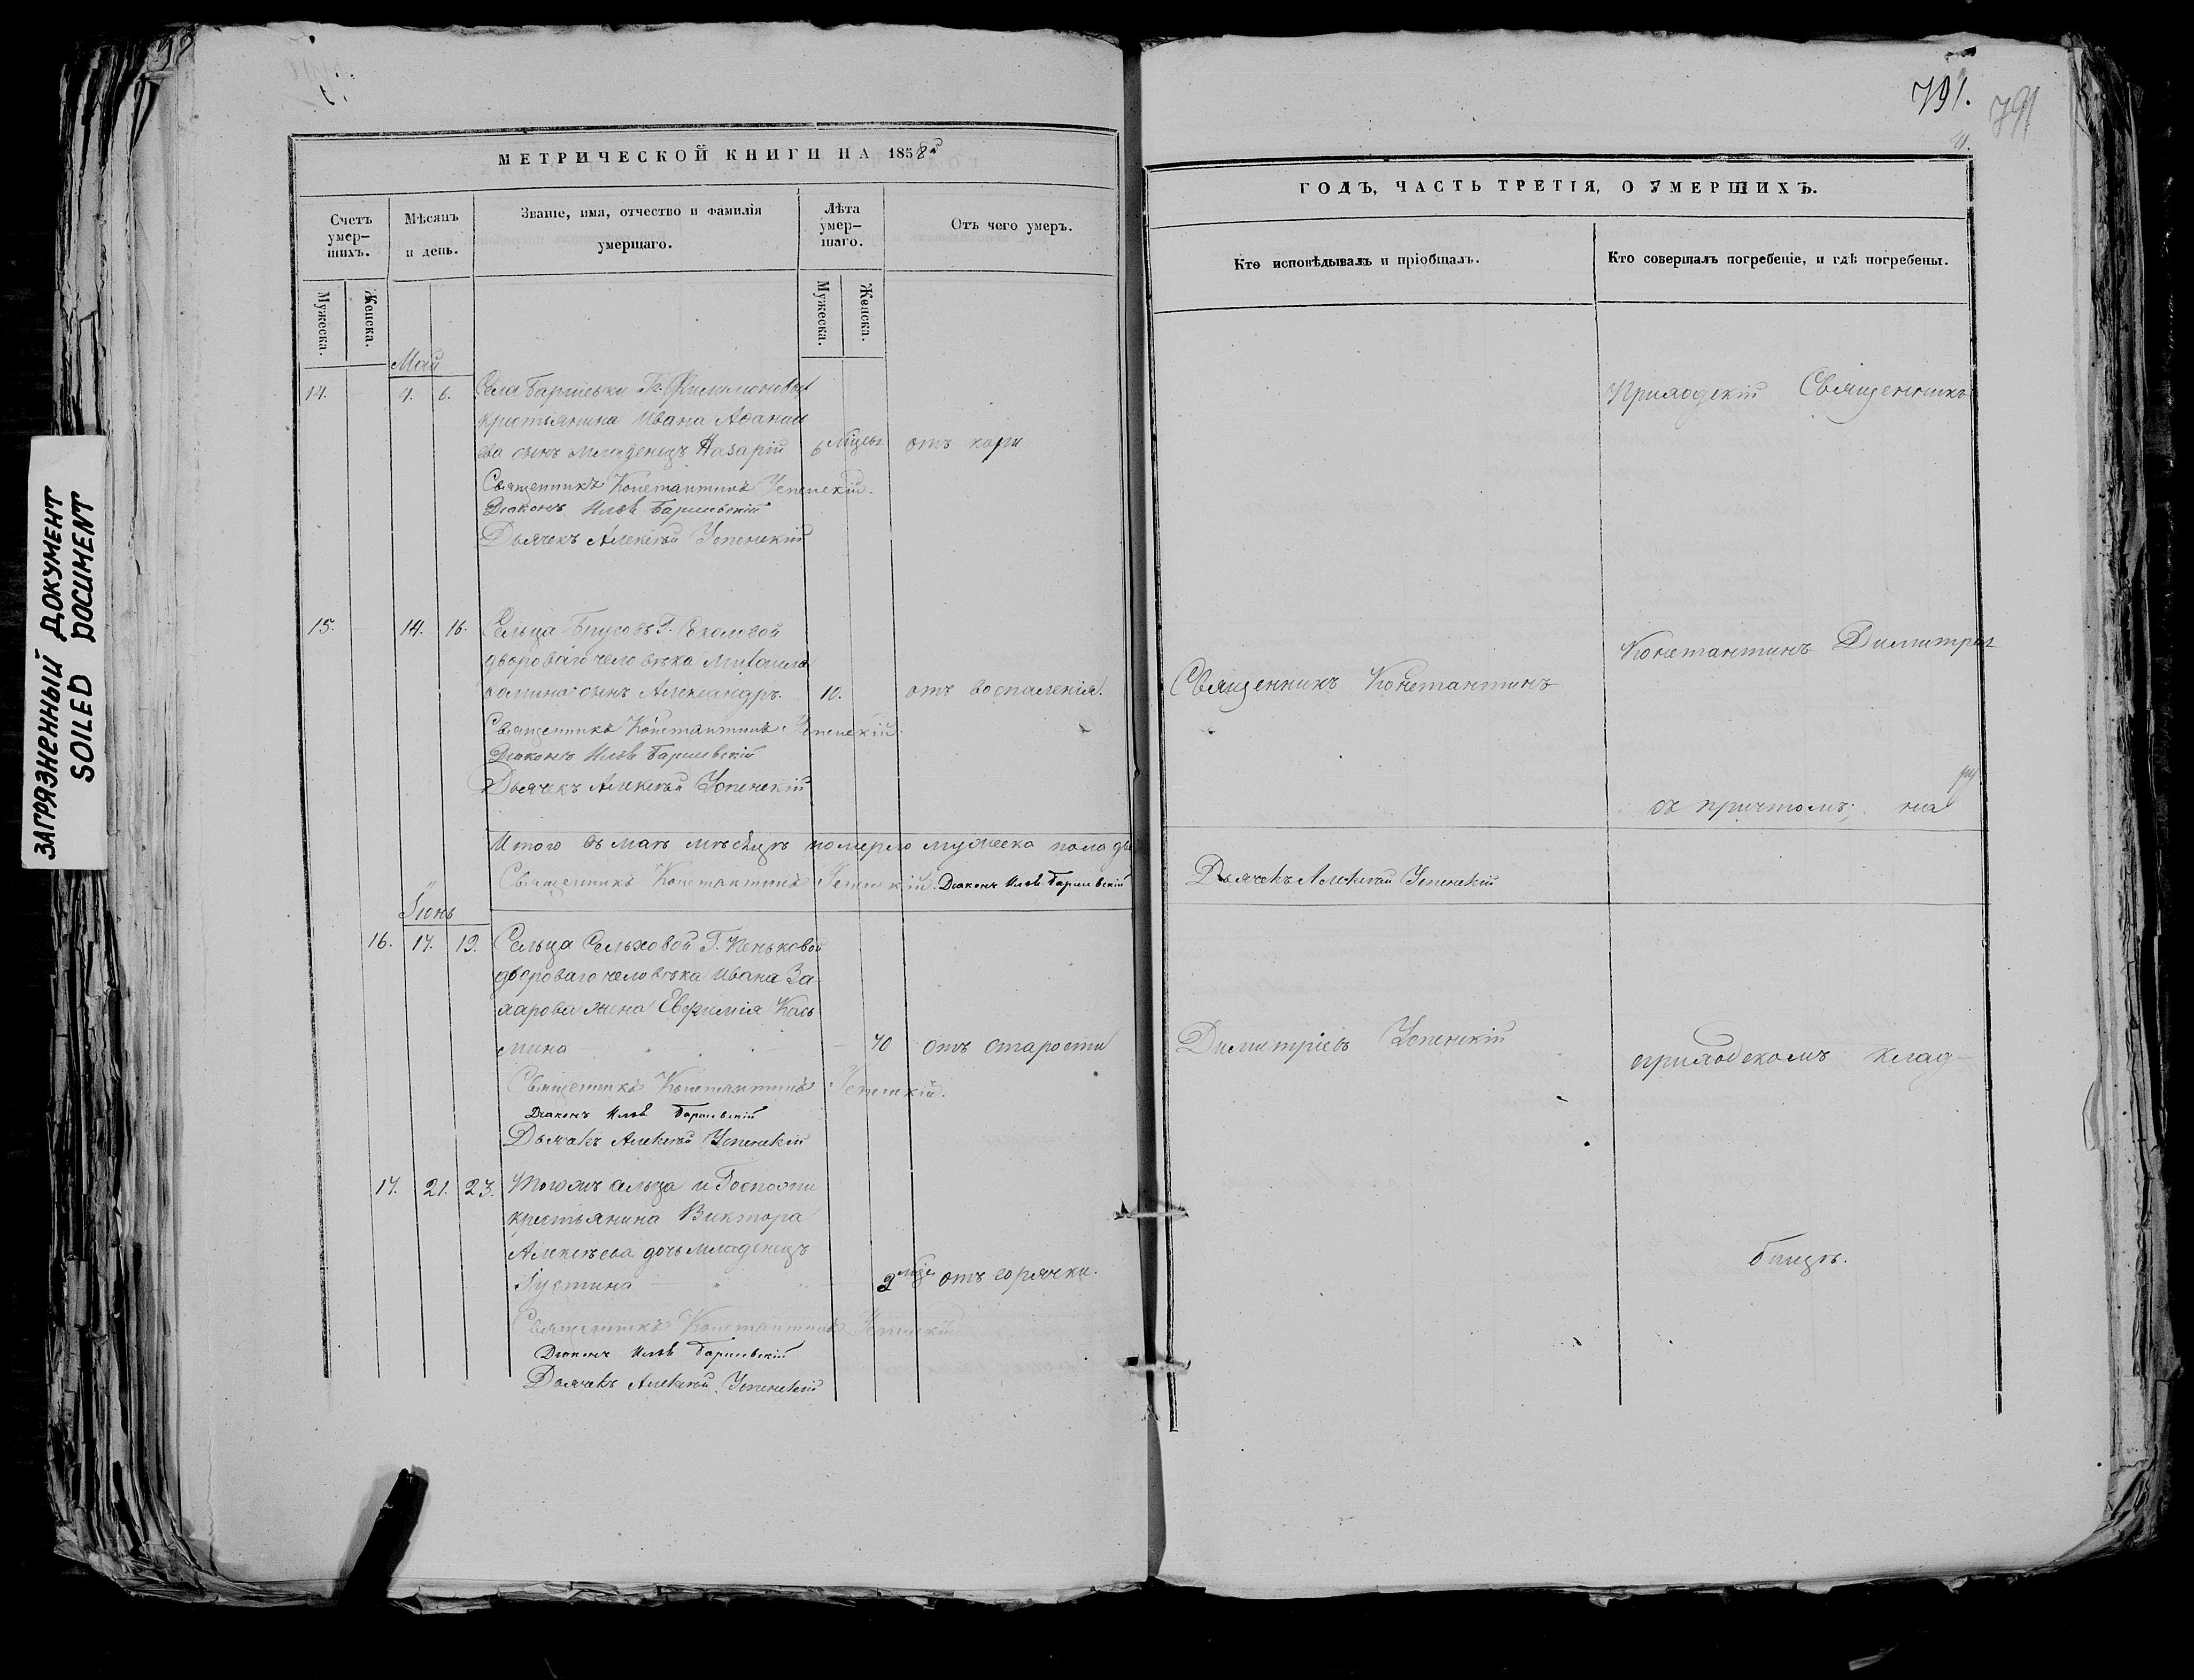 ЗАГРЯЗНЕННЫЙ ДОКУМЕНТ
SOILED DOCUMENT
МЕТРИЧЕСКОЙ КНИГИ НА 1858й
Счетъ умер-шихъ.
Мѣсяцъ и день.
Званіе, имя, отчество и фамилія умершаго.
Лѣта умер-шаго.
Отъ чего умеръ.
Мужеска. Женска.
Мужеска. Женска.
Май
14. 4. 6. Села Г. Филимоновыхъ
крестьянина Ивана Аѳанась
ева сынъ младенецъ Назарій 6 мѣсец отъ кори
Священникъ Константинъ Успенскій.
Діаконъ Илья
Дьячекъ Алексѣй Успенскій
15. 14. 16. Сельца Г. Соколовой
двороваго человѣка Михаила
сынъ Александръ 10. отъ воспаленія.
Священникъ Константинъ Успенскій
Діаконъ Илья
Дьячекъ Алексѣй Успенскій
Итого въ маѣ мѣсяцѣ померло мужеска пола
Священникъ Константинъ Успенскій. Діаконъ Илья
Іюнь
16. 17. 19. Сельца Сельховой Г. Пеньковой
двороваго человѣка Ивана За
харова жена Евфимія Козь
мина 70 отъ старости
Священникъ Константинъ Успенскій.
Діаконъ Илья
Дьячекъ Алексѣй Успенскій
17. 21. 23. Тогожъ сельца и Госпожи
крестьянина Виктора
Алексѣева дочь младенецъ
Іустина 2 мѣс отъ горячки.
Священникъ Константинъ Успенскій
Діаконъ Илья
Дьячекъ Алексѣй Успенскій
791. 791
ГОДЪ, ЧАСТЬ ТРЕТІЯ, О УМЕРШИХЪ.
Кто исповѣдывалъ и пріобщалъ.
Кто совершалъ погребеніе, и гдѣ погребены.
Приходскій Священникъ
Константинъ Димитріев
Священникъ Константинъ
съ причтомъ; на
Дьячекъ Алексѣй Успенскій
Димитріевъ Успенскій
приходскомъ клад-
бищѣ.